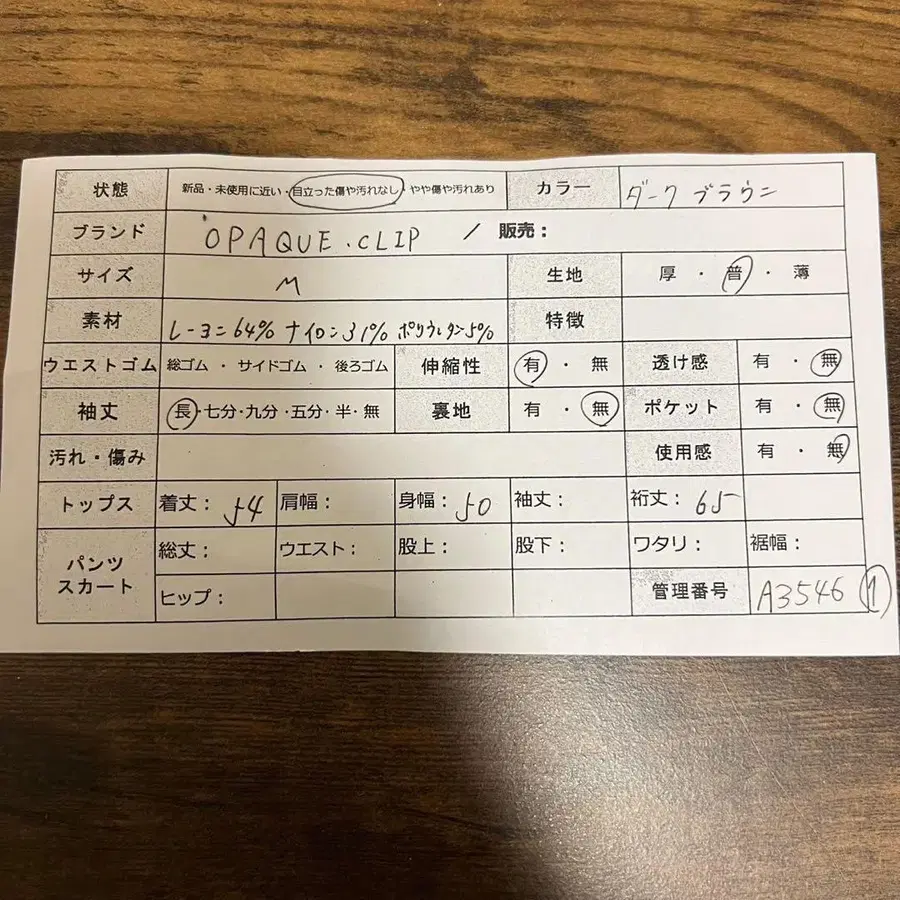 状態 新品・未使用に近い・目立った傷や汚れなし・やや傷や汚れあり カラー ダークブラウン
ブランド OPAQUE.CLIP / 販売：
サイズ M 生地 厚・普・薄
素材 レーヨン64% ナイロン31% ポリウレタン5% 特徴
ウエストゴム 総ゴム・サイドゴム・後ろゴム 伸縮性 有・無 透け感 有・無
袖丈 長・七分・九分・五分・半・無 裏地 有・無 ポケット 有・無
汚れ・傷み 使用感 有・無
トップス 着丈：54 肩幅： 身幅：50 袖丈： 裄丈：65
パンツ スカート 総丈： ウエスト： 股上： 股下： ワタリ： 裾幅：
ヒップ： 管理番号 A3546 1